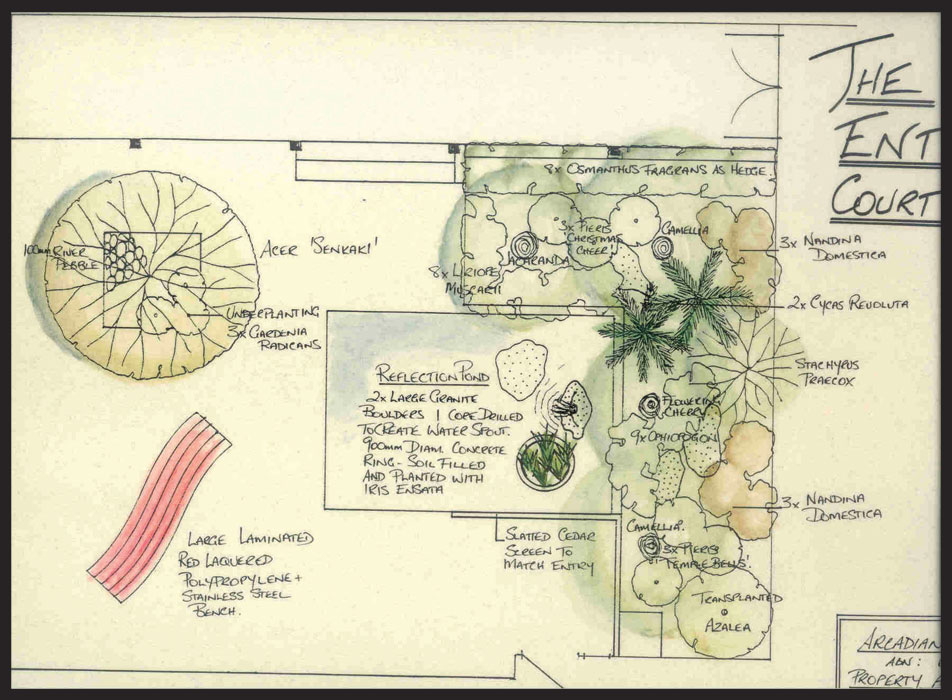 THE
ENT
COURT
8x OSMANTHUS FRAGRANS AS HEDGE.
3x PIERIS
'CHRISTMAS
CHEER'
CAMELLIA
JACARANDA
8x LIRIOPE
MUSCARII
3x NANDINA
DOMESTICA
2x CYCAS REVOLUTA
100mm RIVER
PEBBLE
ACER 'SENKAKI'
UNDERPLANTING
3x GARDENIA
RADICANS
STACHYRUS
PRAECOX
REFLECTION POND
2x LARGE GRANITE
BOULDERS 1 CORE DRILLED
TO CREATE WATER SPOUT.
900mm DIAM. CONCRETE
RING - SOIL FILLED
AND PLANTED WITH
IRIS ENSATA
FLOWERING
CHERRY
9x OPHIOPOGON
3x NANDINA
DOMESTICA
CAMELLIA.
3x PIERIS
'TEMPLE BELLS'.
SLATTED CEDAR
SCREEN TO
MATCH ENTRY
LARGE LAMINATED
RED LAQUERED
POLYPROPYLENE +
STAINLESS STEEL
BENCH.
TRANSPLANTED
AZALEA
ARCADIAN
ABN:
PROPERTY